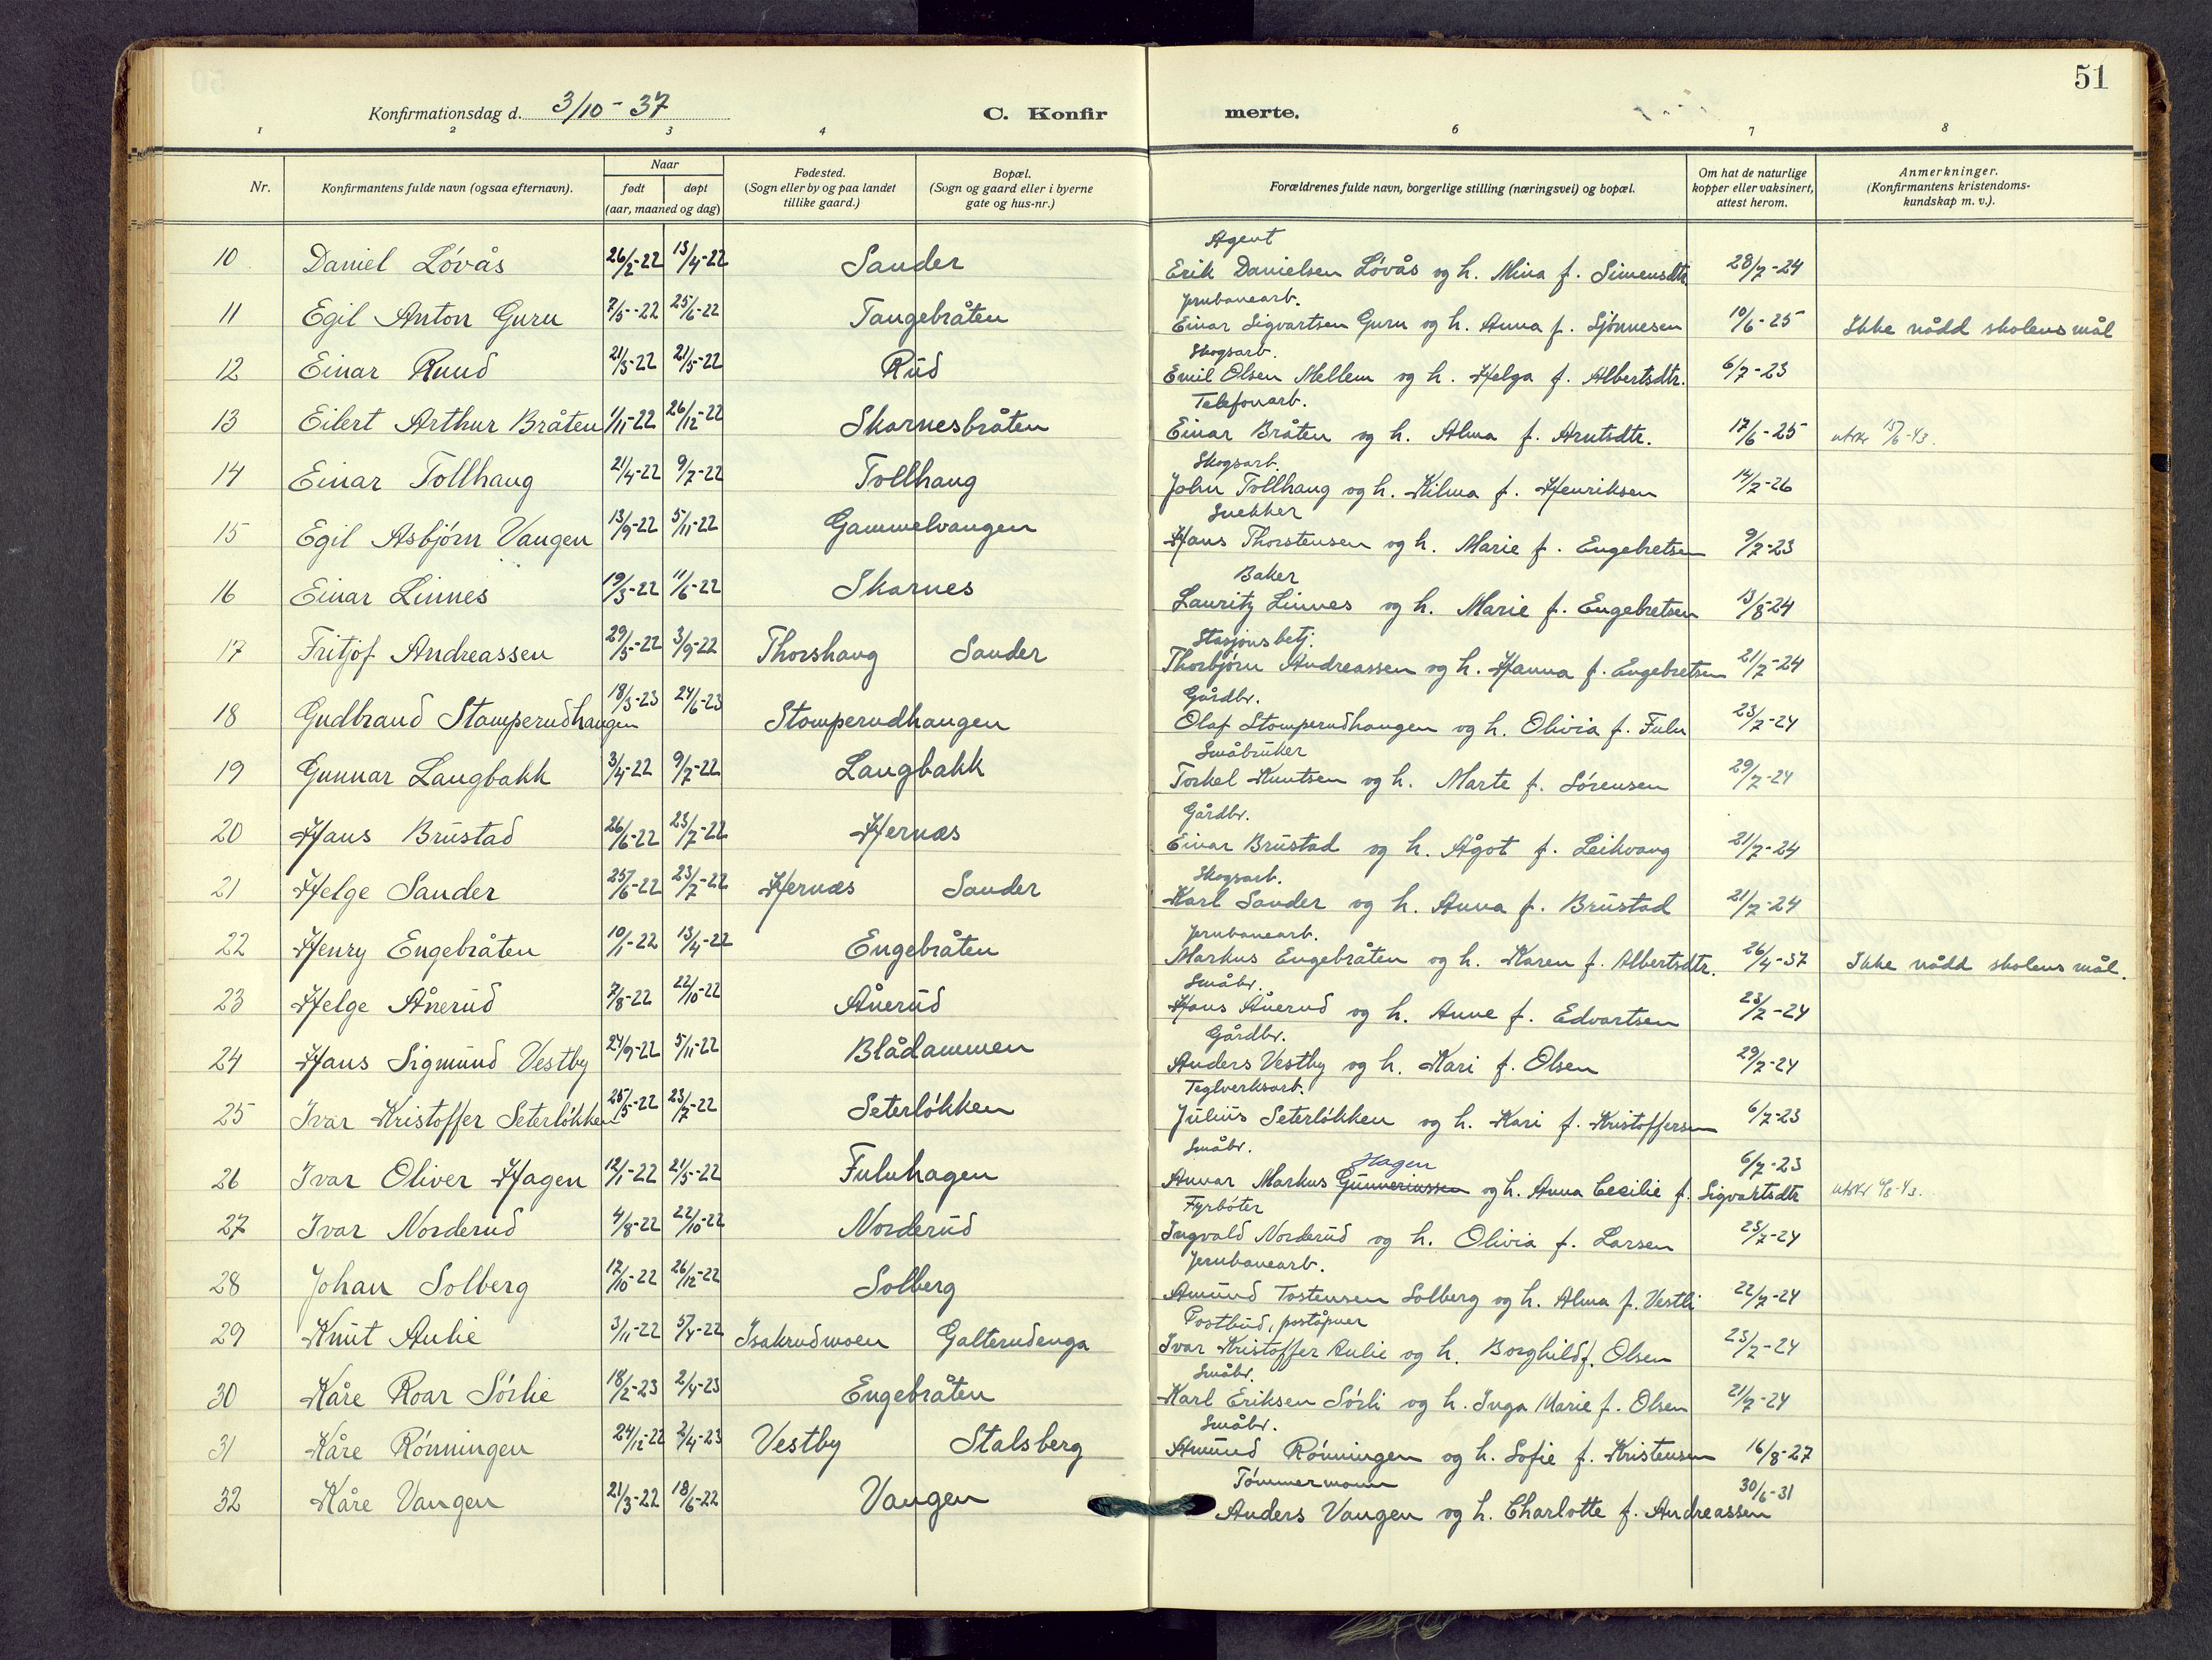 51
Konfirmationsdag d. 3/10-37
C. Konfirmerte.
1 2 3 4 6 7 8
Nr.
Konfirmantens fulde navn (ogsaa efternavn).
Naar
født døpt
(aar, maaned og dag)
Fødested.
(Sogn eller by og paa landet
tillike gaard.)
Bopæl.
(Sogn og gaard eller i byerne
gate og hus-nr.)
Forældrenes fulde navn, borgerlige stilling (næringsvei) og bopæl.
Om hat de naturlige
kopper eller vaksinert,
attest herom.
Anmerkninger.
(Konfirmantens kristendoms-
kundskap m. v.).
Agent
10 Daniel Lövås 26/2-22 13/4-22 Sander Erik Danielsen Lövås og h. Mina f. Simensdtr. 28/7-24
Jernbanearb.
11 Egil Anton Guru 7/5-22 25/6-22 Tangebråten Einar Sigvartsen Guru og h. Anna f. Sjönnesen 10/6-25 Ikke nådd skolens mål
Skogsarb.
12 Einar Ruud 21/3-22 21/5-22 Rud Emil Olsen Mellem og h. Helga f. Albertsdtr. 6/7-23
Telefonarb.
13 Eilert Arthur Bråten 1/11-22 26/12-22 Skarnesbråten Einar Bråten og h. Alma f. Arntsdtr. 17/6-25 utskr 15/6-43.
Skogsarb.
14 Einar Tollhaug 21/4-22 9/7-22 Tollhaug John Tollhaug og h. Hilma f. Henriksen 14/7-26
Snekker
15 Egil Asbjörn Vangen 13/9-22 5/11-22 Gammelvangen Hans Thorstensen og h. Marie f. Engebretsen 9/7-23
Baker
16 Einar Linnes 19/3-22 11/6-22 Skarnes Lauritz Linnes og h. Marie f. Engebretsen 13/8-24
Stasjonsbetj.
17 Fritjof Andreassen 29/5-22 3/9-22 Thorshaug Sander Thorbjörn Andreassen og h. Hanna f. Engebretsen 21/7-24
Gårdbr.
18 Gudbrand Stomperudhaugen 18/3-23 24/6-23 Stomperudhaugen Olaf Stomperudhaugen og h. Olivia f. Fulu 23/7-24
Småbruker
19 Gunnar Langbakk 3/4-22 9/7-22 Langbakk Torkel Knutsen og h. Marte f. Sörensen 29/7-24
Gårdbr.
20 Hans Brustad 26/6-22 23/7-22 Hernæs Einar Brustad og h. Ågot f. Leikvang 21/7-24
Skogsarb.
21 Helge Sander 25/6-22 23/7-22 Hernæs Sander Karl Sander og h. Anna f. Brustad 21/7-24
Jernbanearb.
22 Henry Engebråten 10/1-22 13/4-22 Engebråten Markus Engebråten og h. Karen f. Albertsdtr. 26/4-37 Ikke nådd skolens mål.
Småbr.
23 Helge Ånerud 7/8-22 22/10-22 Ånerud Hans Ånerud og h. Anne f. Edvartsen 23/7-24
Gårdbr.
24 Hans Sigmund Vestby 24/9-22 5/11-22 Blådammen Anders Vestby og h. Kari f. Olsen 29/7-24
Teglverksarb.
25 Ivar Kristoffer Seterlökken 25/5-22 23/7-22 Seterlökken Julius Seterlökken og h. Kari f. Kristoffersen 6/7-23
Småbr.
Hagen
26 Ivar Oliver Hagen 12/1-22 21/5-22 Fuluhagen Annar Markus Gunneriussen og h. Anna Cecilie f. Sigvartsdtr 6/7-23 utskr
Fyrböter
27 Ivar Norderud 4/8-22 22/10-22 Norderud Ingvald Norderud og h. Olivia f. Larsen 25/7-24
Jernbanearb.
28 Johan Solberg 12/10-22 26/12-22 Solberg Amund Tostensen Solberg og h. Alma f. Vestli 22/7-24
Postbud, poståpner
29 Knut Aulie 3/11-22 5/4-22 Isakrudmoen Galterudenga Ivar Kristoffer Aulie og h. Borghild f. Olsen 23/7-24
Småbr.
30 Kåre Roar Sörlie 18/2-23 2/4-23 Engebråten Karl Eriksen Sörli og h. Inga Marie f. Olsen 21/7-24
Småbr.
31 Kåre Rönningen 24/12-22 2/4-23 Vestby Stalsberg Amund Rönningen og h. Sofie f. Kristensen 16/8-27
Tömmermann
32 Kåre Vangen 21/3-22 18/6-22 Vangen Anders Vangen og h. Charlotte f. Andreassen 30/6-31